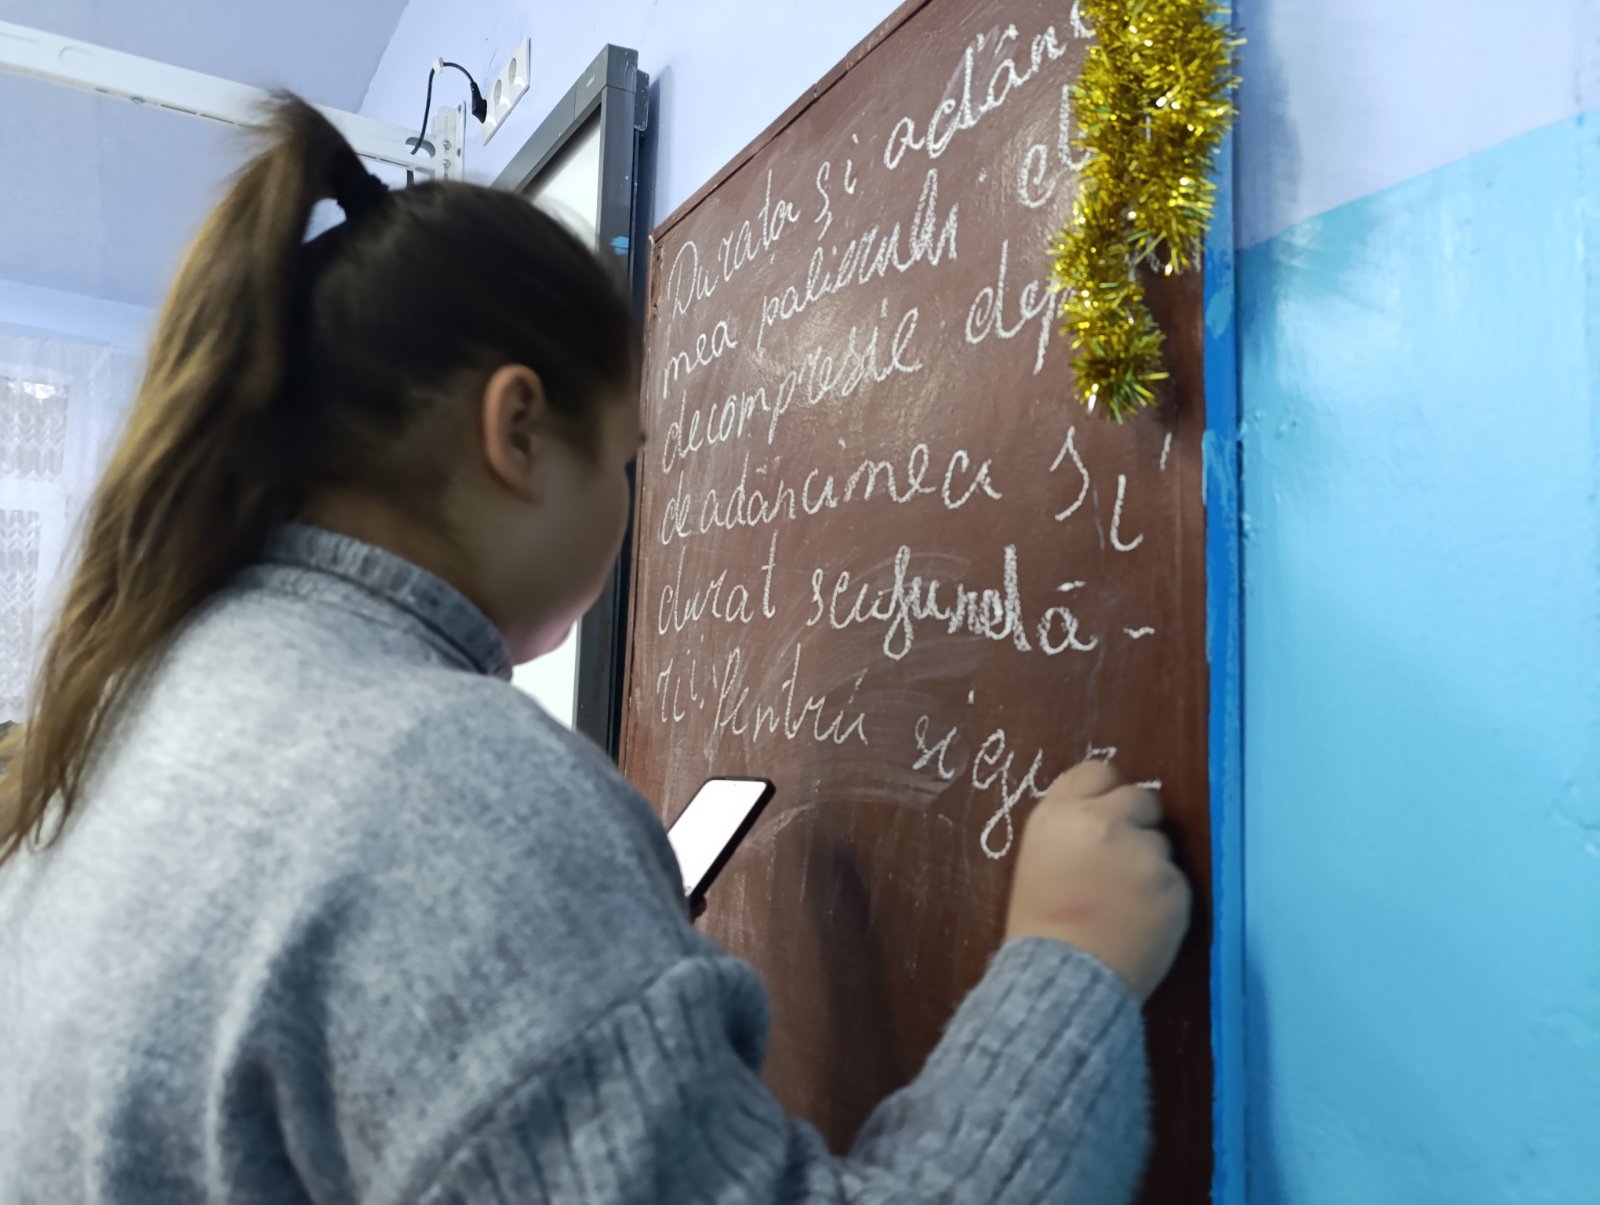 Durata și adânci
mea palierului de
decompresie dep
de adâncimea și
durat scufundă-
rii. Pentru sigur-